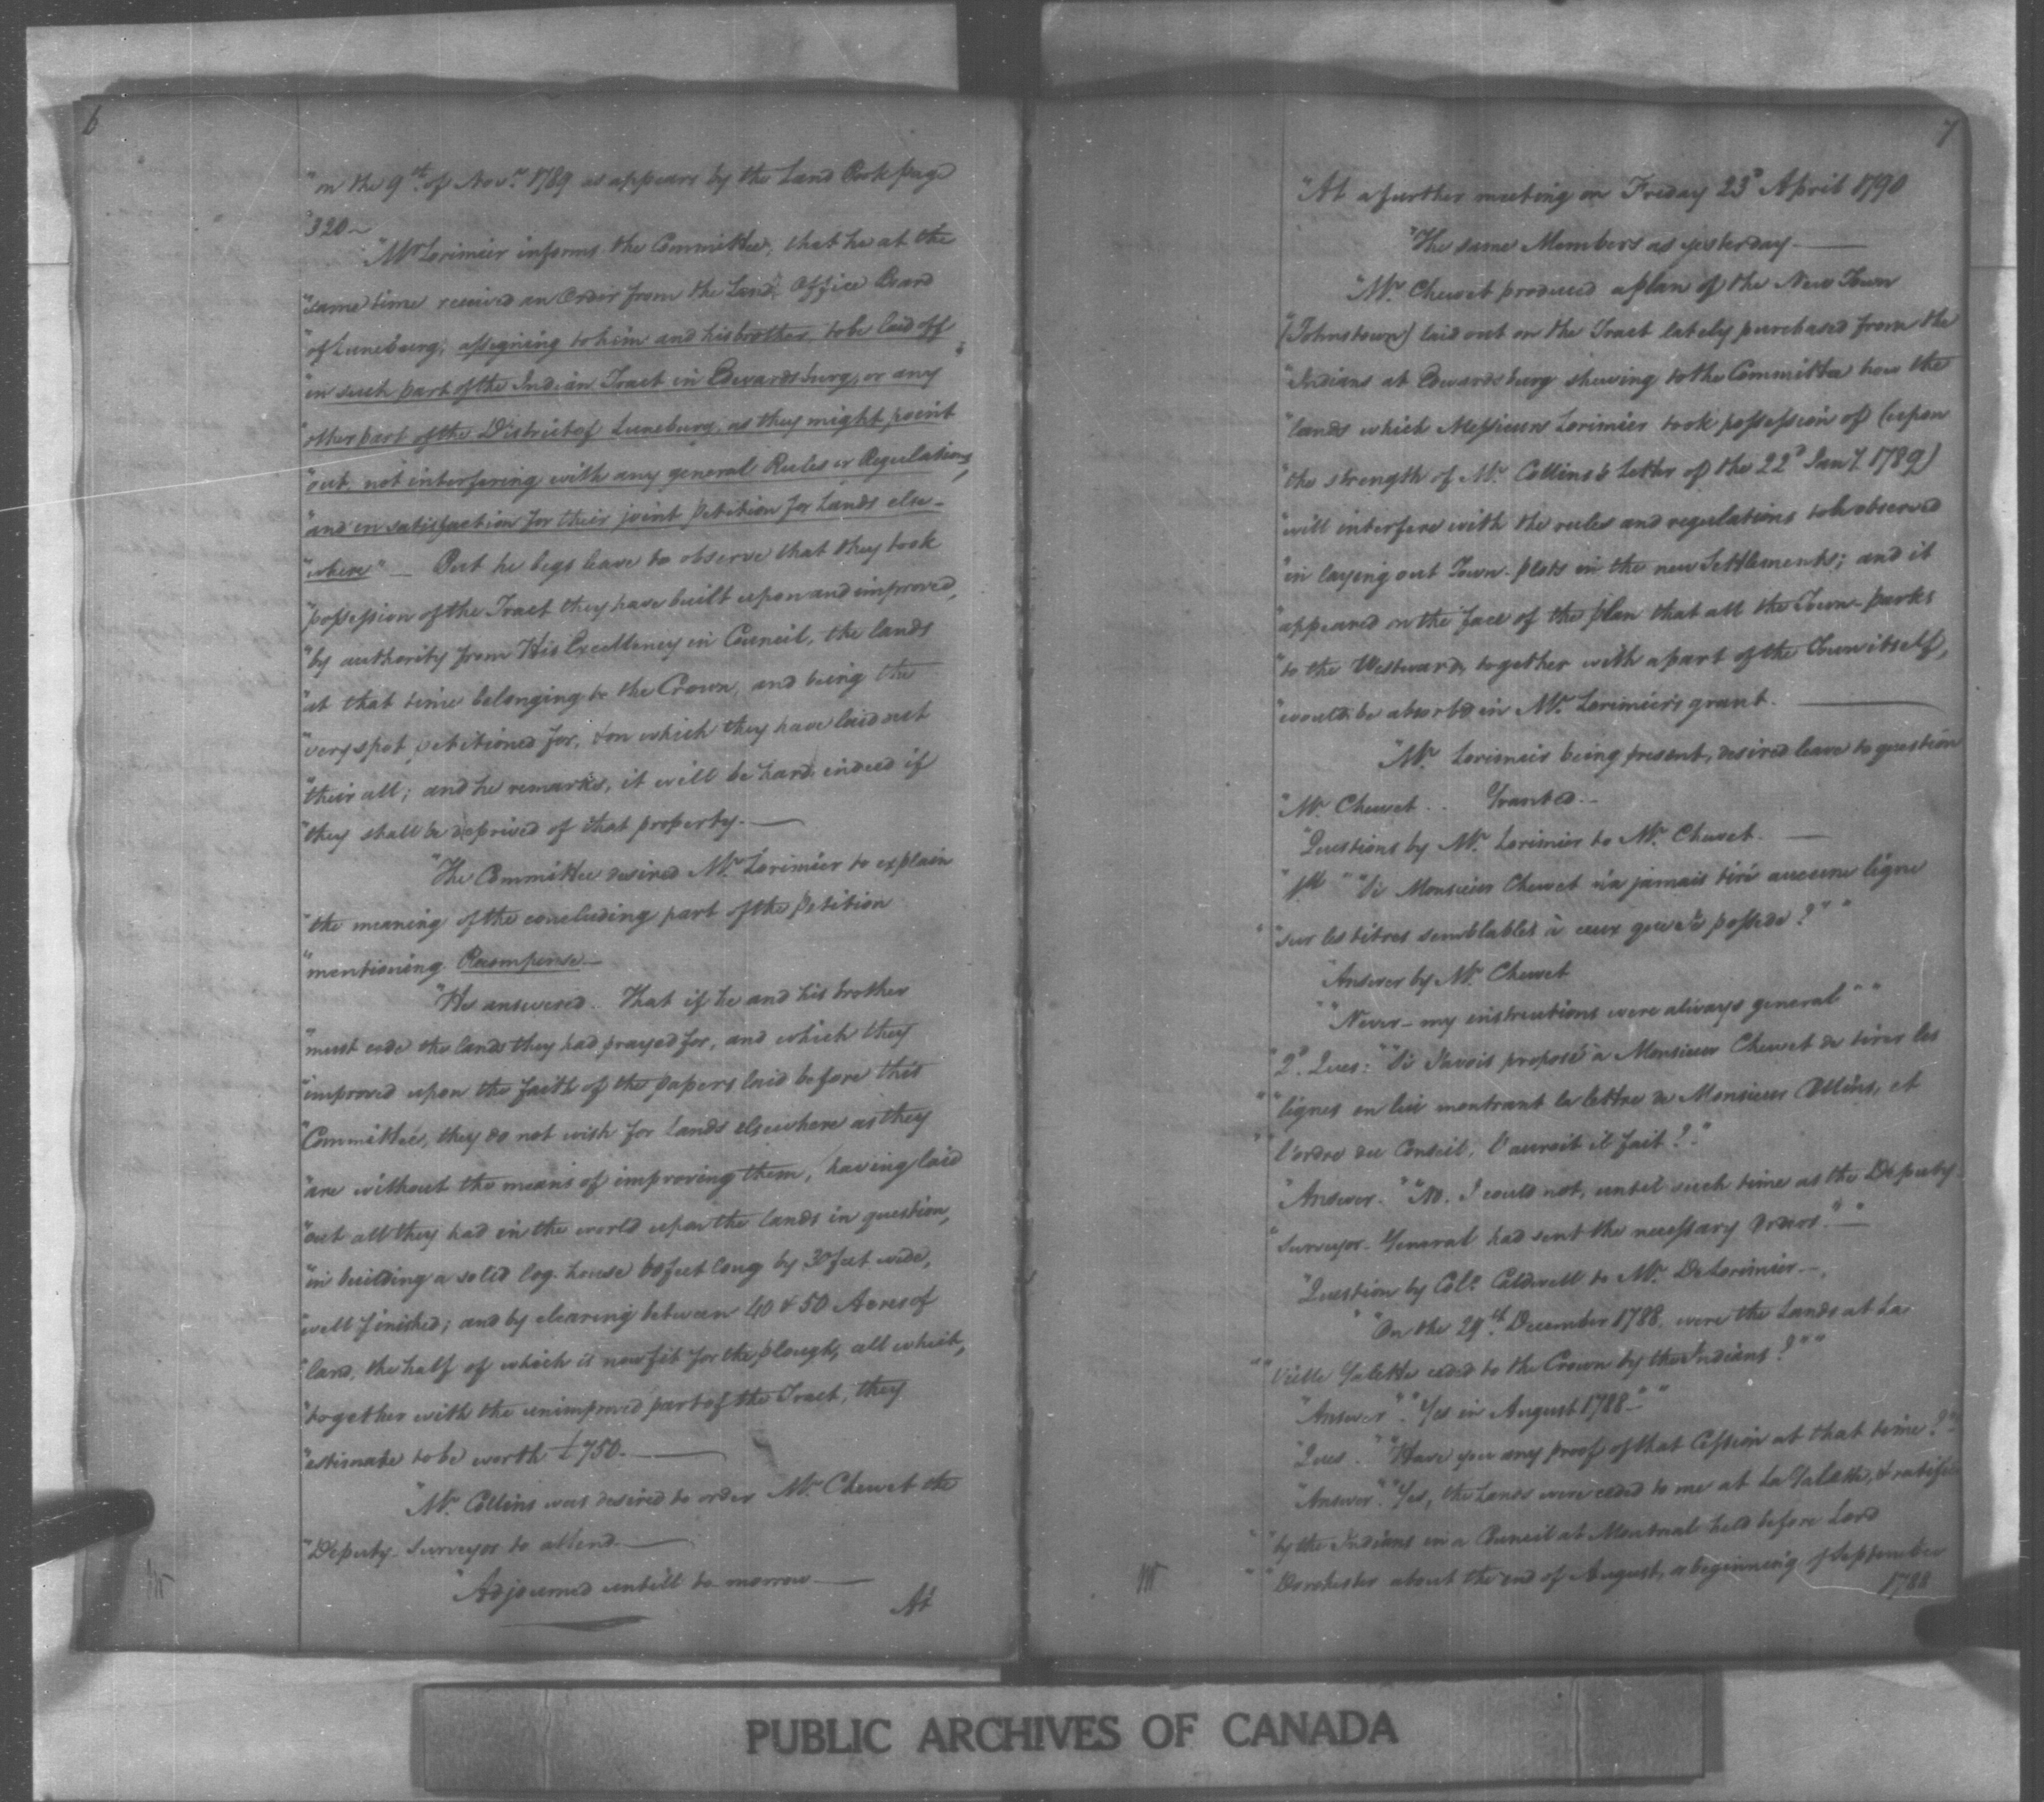 6
"on the 9th. of Novr. 1789 as appears by the Land Book page
"320 —
"Mr Lorimier informs the Committee, that he at the
"same time received an Order from the Land Office Board
"of Luneburg, assigning to him and his brother, to be laid off
"in such part of the Indian Tract in Edwardsburg, or any
"other part of the District of Luneburg, as they might point
"out, not interfering with any general Rules or Regulations,
"and in satisfaction for their joint Petition for Lands else-
"where" — But he begs leave to observe that they took
"possession of the Tract they have built upon and improved,
"by authority from His Excellency in Council, the lands
"at that time belonging to the Crown, and being the
"very spot petitioned for, & on which they have laid out
"their all; and he remarks, it will be hard indeed if
"they shall be deprived of that property. —
"The Committee desired Mr. Lorimier to explain
"the meaning of the concluding part of the Petition
"mentioning Recompense —
"He answered. That if he and his brother
"must cede the lands they had prayed for, and which they
"improved upon the faith of the papers laid before this
"Committee, they do not wish for Lands elsewhere as they
"are without the means of improving them, having laid
"out all they had in the world upon the lands in question,
"in building a solid log-house 60 feet long by 30 feet wide,
"well finished; and by clearing between 40 & 50 Acres of
"land, the half of which is now fit for the plough, all which,
"together with the unimproved part of the Tract, they
"estimate to be worth £750. —
"Mr. Collins was desired to order Mr. Chewet the
"Deputy Surveyor to attend —
"Adjourned untill to-morrow —
At
7
"At a further meeting on Friday 23d April 1790
"The same Members as yesterday —
"Mr. Chewet produced a plan of the New Town
"(Johnstown) laid out on the Tract lately purchased from the
"Indians at Edwardsburg shewing to the Committee how the
"lands which Messieurs Lorimier took possession of (upon
"the strength of Mr. Collins's Letter of the 22d Jany. 1789)
"will interfere with the rules and regulations to be observed
"in laying out Town-plots in the new Settlements; and it
"appeared on the face of the plan that all the Town-parks
"to the Westward, together with a part of the Town itself,
"would be absorbed in Mr. Lorimier's grant. —
"Mr. Lorimier being present, desired leave to question
"Mr. Chewet .. Granted. —
"Questions by Mr. Lorimier to Mr. Chewet. —
"1st " "Si Monsieur Chewet n'a jamais tiré aucune ligne
" "sur les titres semblables à ceux que je possede?" "
"Answer by Mr. Chewet
" "Never — my instructions were always general" "
"2d. Ques: "Si J'avois proposé à Monsieur Chewet de tirer les
" "lignes en lui montrant la lettre de Monsieur Collins, et
" "l'ordre du Conseil, l'auroit il fait?"
"Answer. " "No. I could not, until such time as the Deputy
"Surveyor General had sent the necessary Orders." —"
"Question by Colo. Caldwell to Mr. DeLorimier —
" "On the 29th. December 1788, were the Lands at La
" "Vieille Galette ceded to the Crown by the Indians?" "
"Answer" "Yes in August 1788 —" "
"Ques. " "Have you any proof of that Cession at that time?"
"Answer". "Yes, the Lands were ceded to me at La Galette, & ratified
" "by the Indians in a Council at Montreal held before Lord
" "Dorchester about the end of August, or beginning of September
1788
PUBLIC ARCHIVES OF CANADA